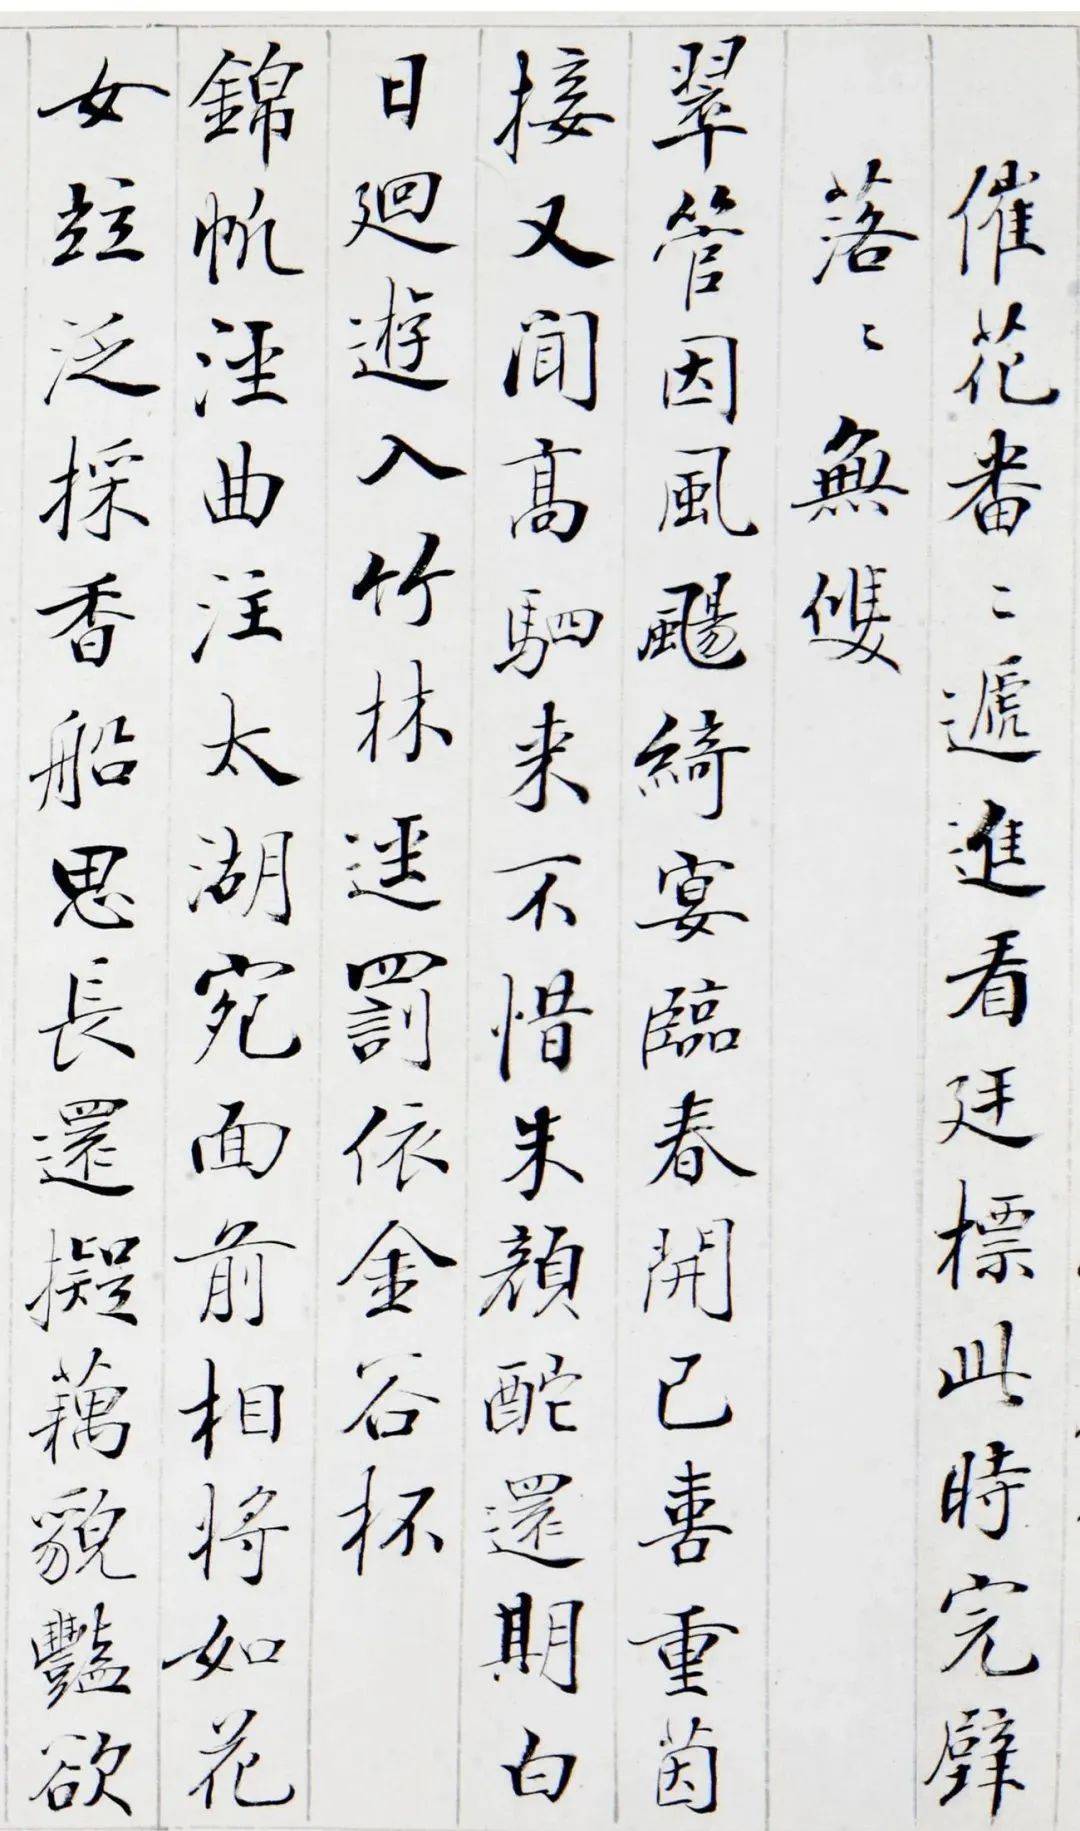 催花番〻遞進看廷標此時完璧
落〻無雙
翠管因風颺綺宴臨春開已喜重茵
接又聞高駟来不惜朱顔酡還期白
日迴遊入竹林逕罰依金谷杯
錦帆涇曲注太湖宛面前相將如花
女竝泛採香船思長還擬藕貌豔欲